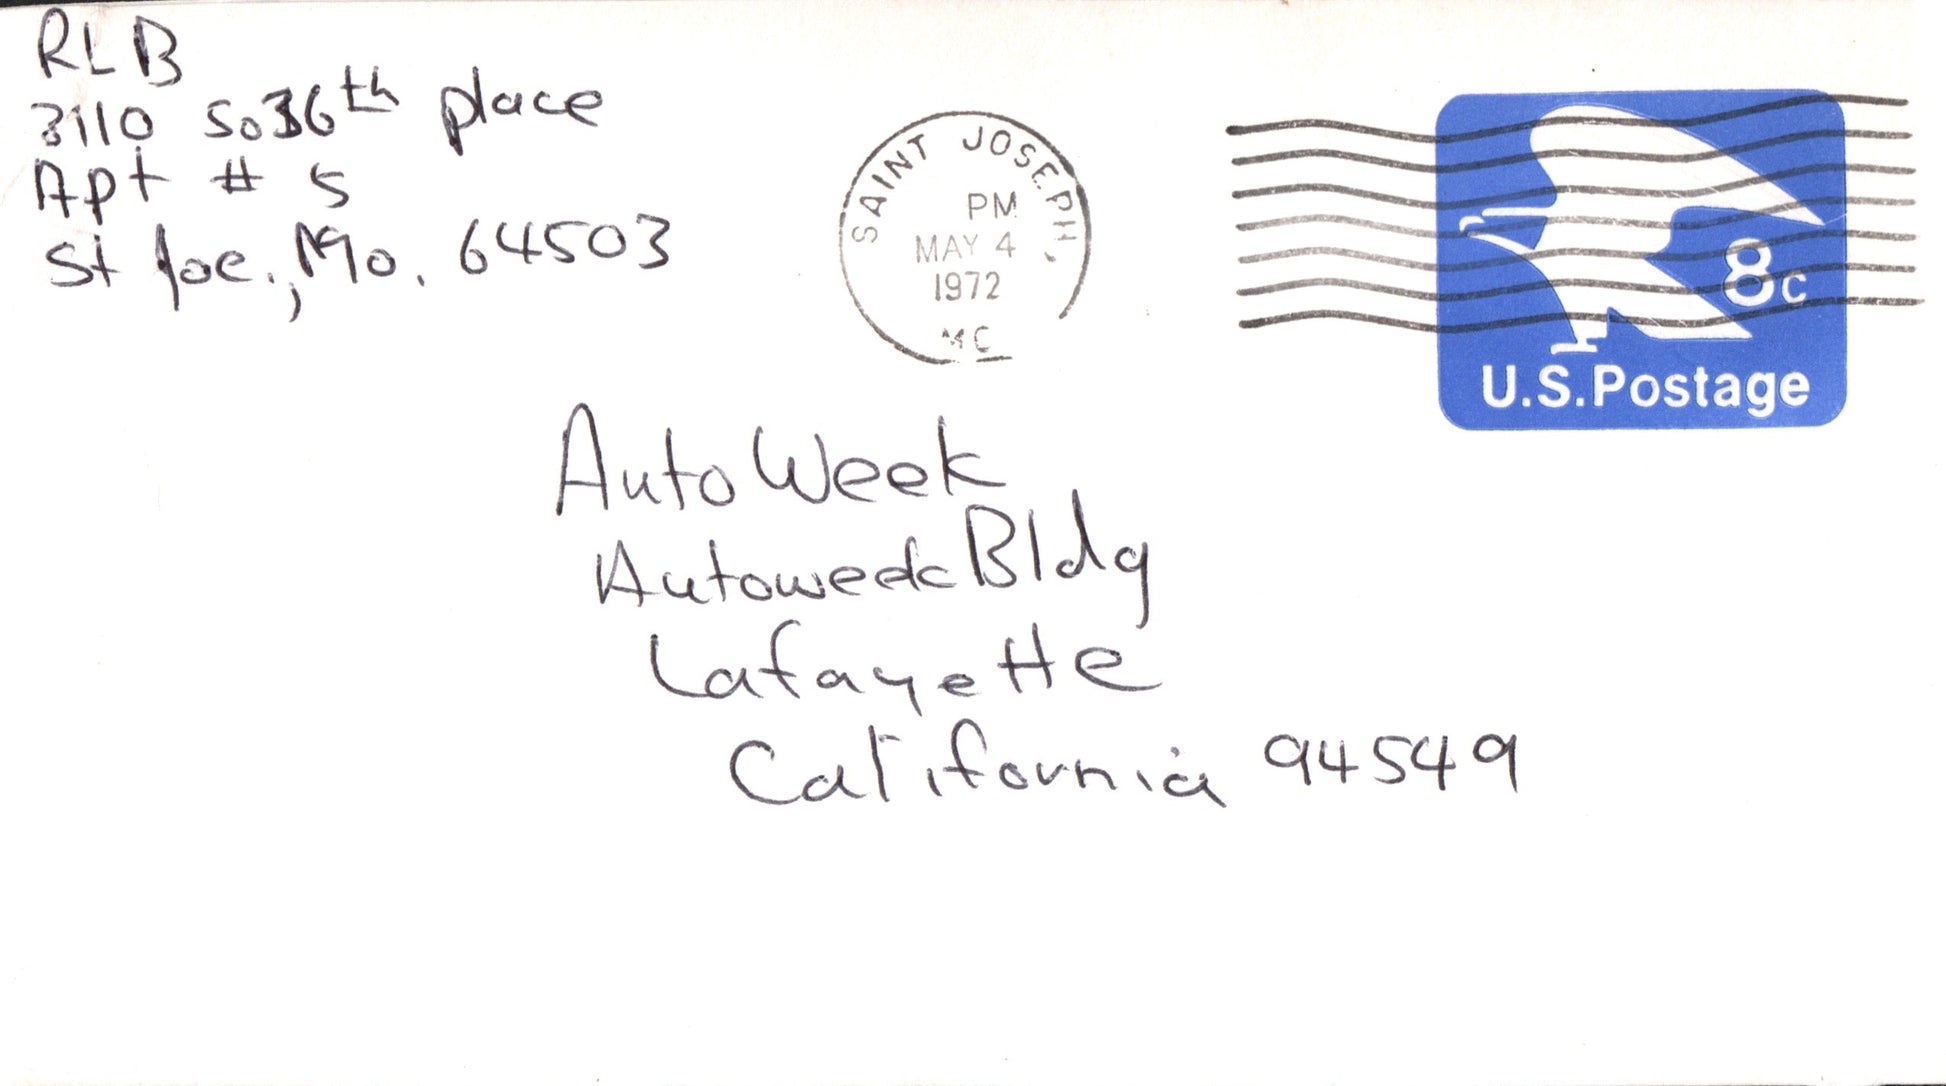 RLB
3110 So 36th place
Apt # 5
St Joe., Mo. 64503
SAINT JOSEPH,
PM
MAY 4
1972
8c
U.S. Postage
Auto Week
Autoweek Bldg
Lafayette
California 94549